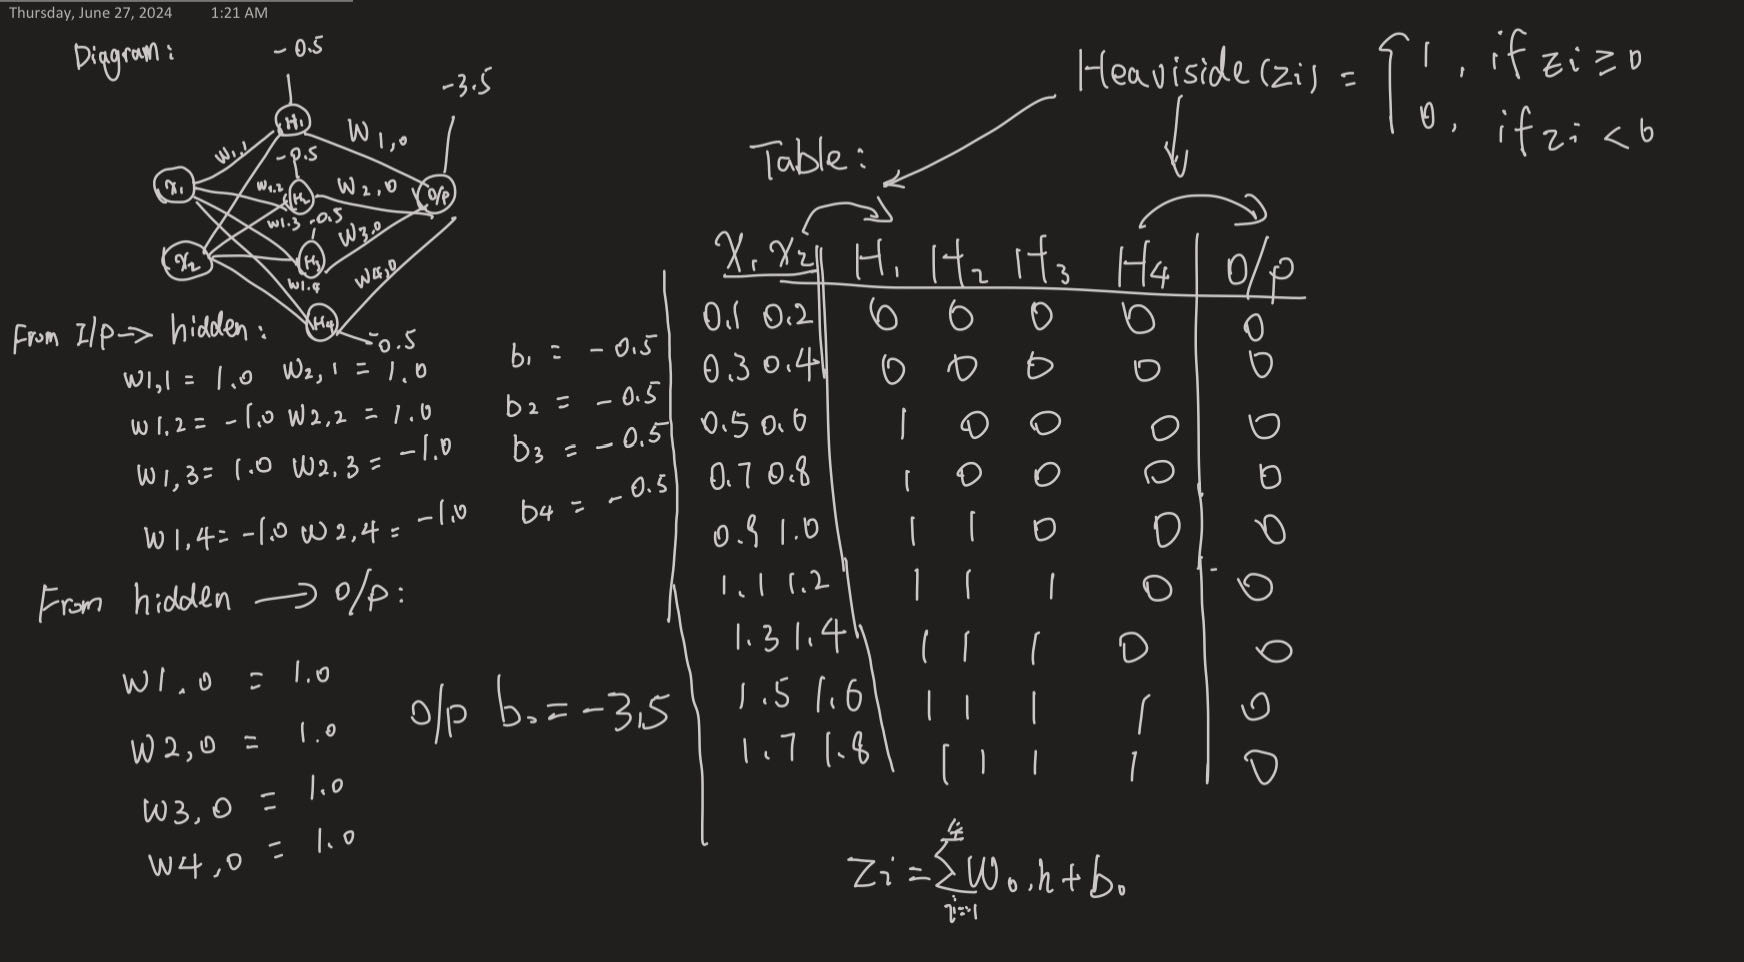 Thursday, June 27, 2024 1:21 AM
Diagram:
-0.5
-3.5
H1
W1,1
W1,0
-0.5
X1
W1.2
H2
W2,0
O/P
W1.3
-0.5
W3.0
X2
H3
W4,0
W1.4
H4
-0.5
From I/P -> hidden:
W1,1 = 1.0 W2,1 = 1.0
W1.2 = -1.0 W2,2 = 1.0
W1,3 = 1.0 W2.3 = -1.0
W1.4 = -1.0 W2,4 = -1.0
b1 = -0.5
b2 = -0.5
b3 = -0.5
b4 = -0.5
From hidden -> O/P:
W1.0 = 1.0
W2,0 = 1.0
W3,0 = 1.0
W4,0 = 1.0
O/P b0 = -3.5
Heaviside(zi) = { 1, if zi ≥ 0
0, if zi < 0
Table:
X1 X2 H1 H2 H3 H4 O/P
0.1 0.2 0 0 0 0 0
0.3 0.4 0 0 0 0 0
0.5 0.6 1 0 0 0 0
0.7 0.8 1 0 0 0 0
0.9 1.0 1 1 0 0 0
1.1 1.2 1 1 1 0 0
1.3 1.4 1 1 1 0 0
1.5 1.6 1 1 1 1 0
1.7 1.8 1 1 1 1 0
4
Zi = Σ W0.h + b0
i=1